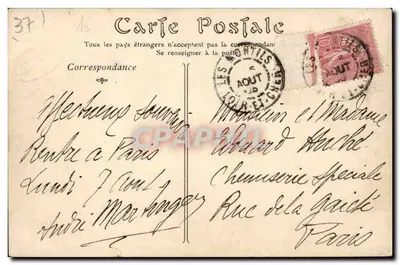 37
Carte Postale
Tous les pays étrangers n'acceptent pas la correspondance
Se renseigner à la poste
Correspondance
LES MONTILS
AOUT
LOIR-ET-CHER
Affectueux souvenir
Rentre à Paris
Lundi 7 Août
André
Monsieur et Madame
Edouard
Chemiserie Spéciale
Rue de la Gaîté
Paris
CPARAMA